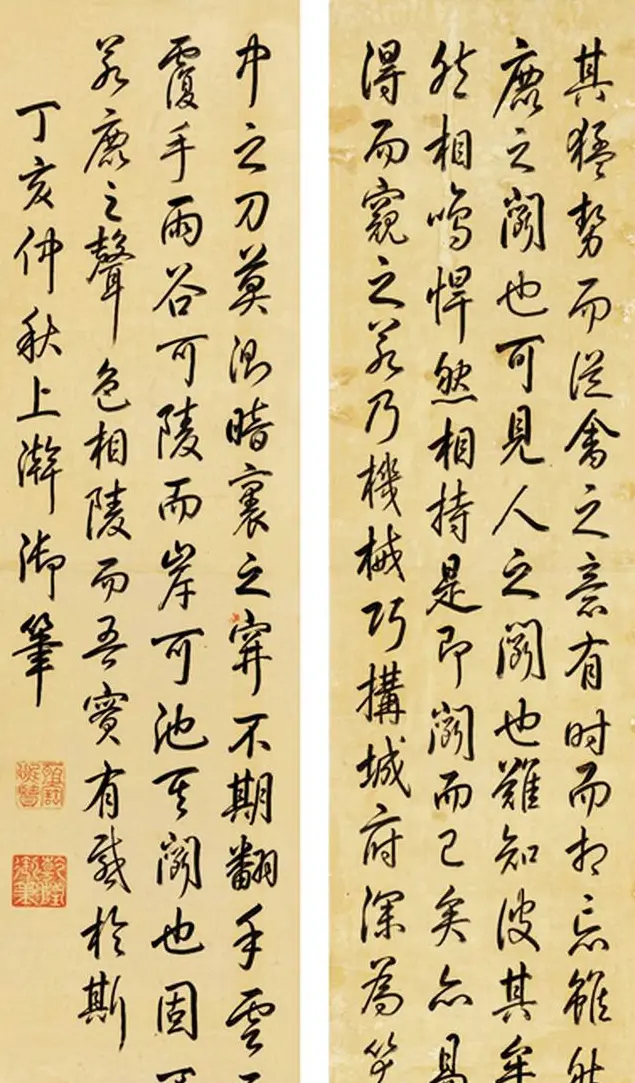 其猛勢而從禽之意有时而相忘雖然
鹿之鬪也可見人之鬪也難知彼其
然相鳴悍然相持是即鬪而已矣亦
得而窺之若乃機械巧搆城府深為笑
中之刀莫測暗裏之穽不期翻手雲
覆手雨谷可陵而岸可池其鬪也固
若鹿之聲色相陵而吾實有感於斯
丁亥仲秋上澣御筆
乾隆御筆